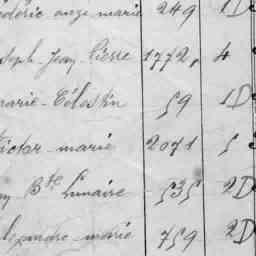 ange marie 249 1D
Joseph Jean Pierre 1772, 4
marie-Célestin 59 1D
Victor marie 2071 5
Bte Lunaire 535 2D
Alexandre marie 759 2D